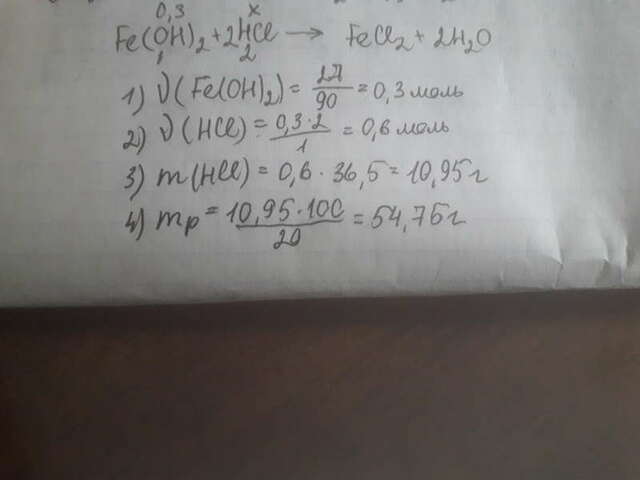 0,3 x
Fe(OH)₂ + 2HCl → FeCl₂ + 2H₂O
1 2
1) ν(Fe(OH)₂) = 27/90 = 0,3 моль
2) ν(HCl) = 0,3·2/1 = 0,6 моль
3) m(HCl) = 0,6·36,5 = 10,95 г
4) mр = 10,95·100/20 = 54,75 г